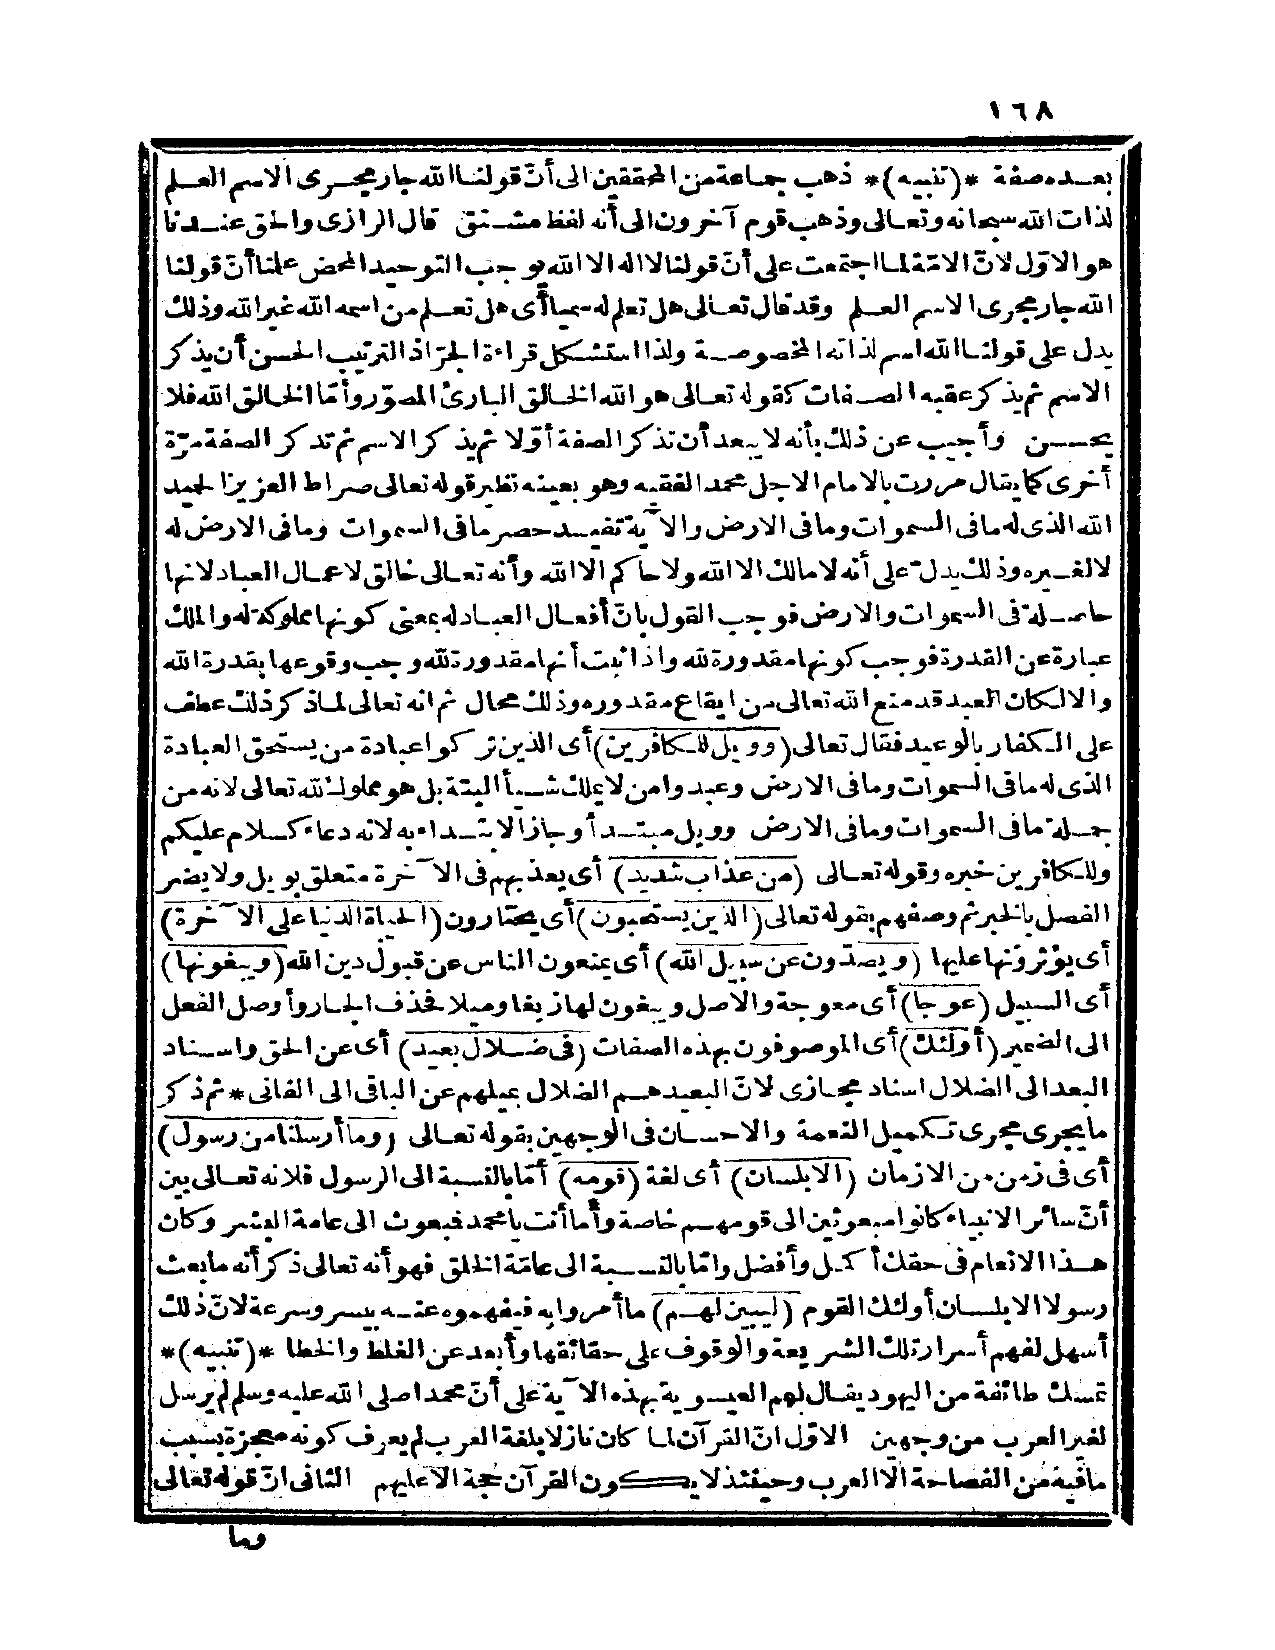 ١٦٨
بعده صفة *(تنبيه)* ذهب جماعة من المحققين الى أنّ قولنا الله جار مجرى الاسم العلم
لذات الله سبحانه وتعالى وذهب قوم آخرون الى أنه لفظ مشتق قال الرازى والحق عندنا
هو الاوّل لانّ الامّة لما اجتمعت على أنّ قولنا لا اله الا الله يوجب التوحيد المحض علمنا أنّ قولنا
الله جار مجرى الاسم العلم وقد قال تعالى هل تعلم له سميا أى هل تعلم من اسمه الله غير الله وذلك
يدل على قولنا الله اسم لذاته المخصوصة ولذا استشكل قراءة الجرّ اذ الترتيب الحسن أن يذكر
الاسم ثم يذكر عقبه الصفات كقوله تعالى هو الله الخالق البارئ المصوّر وأمّا الخالق الله فلا
يحسن وأجيب عن ذلك بأنه لا يبعد أن تذكر الصفة أوّلا ثم يذكر الاسم ثم تذكر الصفة مرّة
أخرى كما يقال مررت بالامام الاجل محمد الفقيه وهو بعينه نظير قوله تعالى صراط العزيز الحميد
الله الذى له ما فى السموات وما فى الارض والآية تفيد حصر ما فى السموات وما فى الارض له
لا لغيره وذلك يدلّ على أنه لا مالك الا الله ولا حاكم الا الله وأنه تعالى خالق لاعمال العباد لانها
حاصلة فى السموات والارض فوجب القول بانّ أفعال العباد له بمعنى كونها مملوكة له والملك
عبارة عن القدرة فوجب كونها مقدورة لله واذا ثبت أنها مقدورة لله وجب وقوعها بقدرة الله
والا لكان العبد قد منع الله تعالى من ايقاع مقدوره وذلك محال ثم انه تعالى لما ذكر ذلك عطف
على الكفار بالوعيد فقال تعالى (وويل للكافرين) أى الذين تركوا عبادة من يستحق العبادة
الذى له ما فى السموات وما فى الارض وعبدوا من لا يملك شيأ البتة بل هو مملوك لله تعالى لانه من
جملة ما فى السموات وما فى الارض وويل مبتدأ وجاز الابتداء به لانه دعاء كسلام عليكم
وللكافرين خبره وقوله تعالى (من عذاب شديد) أى يعذبهم فى الآخرة متعلق بويل ولا يضر
الفصل بالخبر ثم وصفهم بقوله تعالى (الذين يستحبون) أى يختارون (الحياة الدنيا على الآخرة)
أى يؤثرونها عليها (ويصدّون عن سبيل الله) أى يمنعون الناس عن قبول دين الله (ويبغونها)
أى السبيل (عوجا) أى معوجة والاصل ويبغون لها زيغا وميلا فحذف الجار وأوصل الفعل
الى الضمير (أولئك) أى الموصوفون بهذه الصفات (فى ضلال بعيد) أى عن الحق واسناد
البعد الى الضلال اسناد مجازى لانّ البعيد هم الضلال بميلهم عن الباقى الى الفانى * ثم ذكر
ما يجرى مجرى تكميل النعمة والاحسان فى الوجهين بقوله تعالى (وما أرسلنا من رسول)
أى فى زمن من الازمان (الا بلسان) أى لغة (قومه) أمّا بالنسبة الى الرسول فلانه تعالى بين
أنّ سائر الانبياء كانوا مبعوثين الى قومهم خاصة وأما أنت يا محمد فبعوث الى عامة البشر وكان
هذا الانعام فى حقك أكمل وأفضل وامّا بالنسبة الى عامّة الخلق فهو أنه تعالى ذكر أنه ما بعث
رسولا الا بلسان أولئك القوم (ليبين لهم) ما أمروا به فيفهموه عنه بيسر وسرعة لانّ ذلك
أسهل لفهم أسرار تلك الشريعة والوقوف على حقائقها وأبعد عن الغلط والخطا *(تنبيه)*
تمسك طائفة من اليهود يقال لهم العيسوية بهذه الآية على أنّ محمدا صلى الله عليه وسلم لم يرسل
لغير العرب من وجهين الاوّل انّ القرآن لما كان نازلا بلغة العرب لم يعرف كونه معجزة بسبب
ما فيه من الفصاحة الا العرب وحينئذ لا يكون القرآن حجة الا عليهم الثانى انّ قوله تعالى
وما